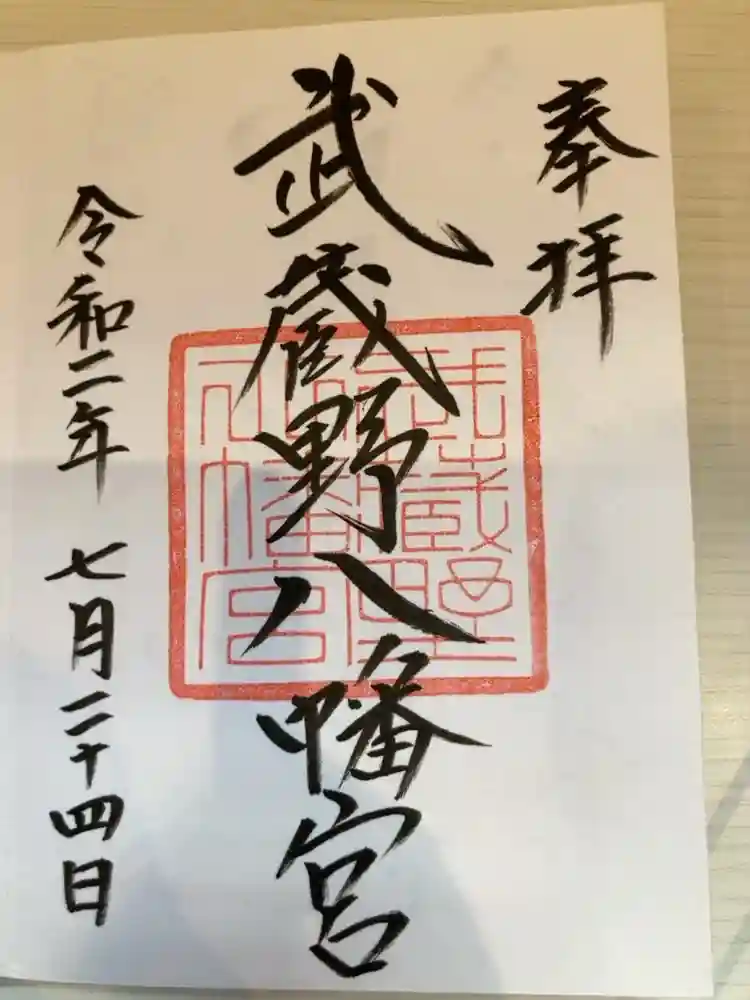 奉拝
武蔵野八幡宮
令和二年 七月二十四日
武蔵野
八幡宮